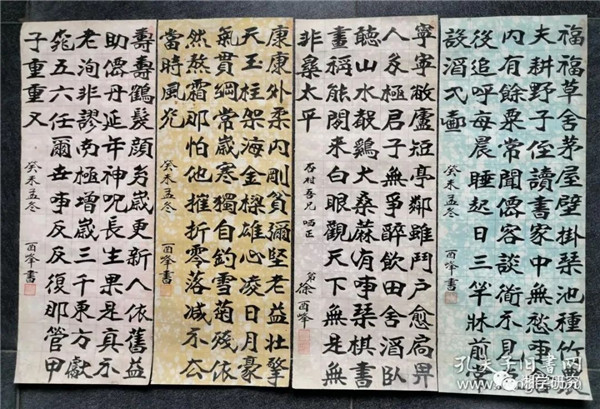 福福草舍茅屋壁掛琹池種竹農
夫耕野子侄讀書家中無愁事
内有餘粟常聞儒客談
後追呼每晨睡起日三竿牀前
設酒弍壺
癸未孟冬 酉峰書
寧寧敝廬短亭鄰雖門户愈扃
人 極君子無爭醉飲田舍酒臥
聽山水報鷄犬桑蔴有時琹棋書
畫稱能閑来白眼觀天下無是無
非樂太平
石村吾兄 哂正
弟徐酉峰
康康外柔内剛貧彌堅老益壯擎
天玉柱架海金樑雄心凌日月豪
氣貫綱常歲寒獨自釣雪菊殘依
然熬霜那怕他摧折零落减不
當時風光
癸未孟冬 酉峰書
壽壽鶴髮顔 歲更新人依舊益
助儒丹延年神呪長生果是真不
老洵非謬南極增歲三千東方獻
桃五六任爾世事反反復那管甲
子重重又
癸未孟冬 酉峰書
孔夫子旧书网